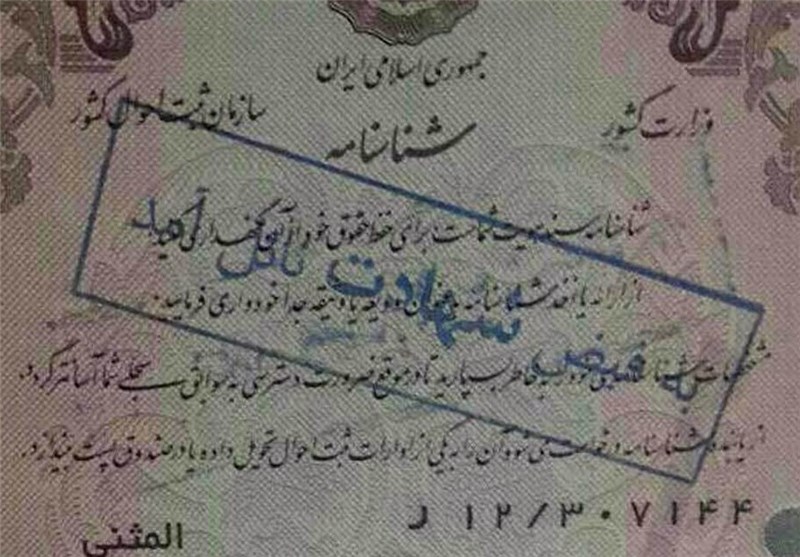 جمهوری اسلامی ایران
وزارت کشور
سازمان ثبت احوال کشور
شناسنامه
شناسنامه سند هویت شماست برای حفظ حقوق خود از آن نگهداری کنید.
از ارائه یا اخذ شناسنامه به عنوان ودیعه یا وثیقه جداً خودداری فرمایید.
مشخصات شناسنامه‌ای خود را به خاطر بسپارید تا در موقع ضرورت دسترسی به سوابق سجلی شما آسانتر گردد.
از یابنده شناسنامه درخواست می‌شود آن را به یکی از ادارات ثبت احوال تحویل داده یا در صندوق پست بیندازد.
به فیض شهادت نائل آمد
ل ۱۲/۳۰۷۱۴۴
المثنی